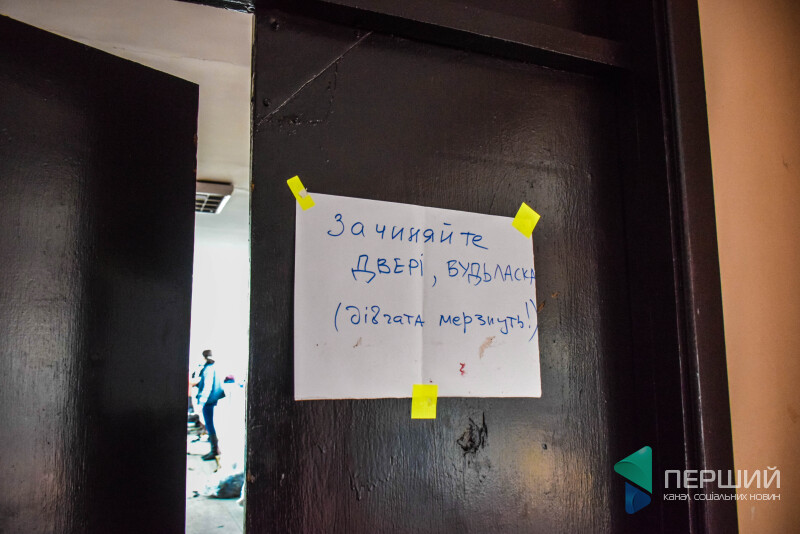 Зачиняйте
ДВЕРІ, БУДЬЛАСКА
(дівчата мерзнуть!)
ПЕРШИЙ
КАНАЛ СОЦІАЛЬНИХ НОВИН